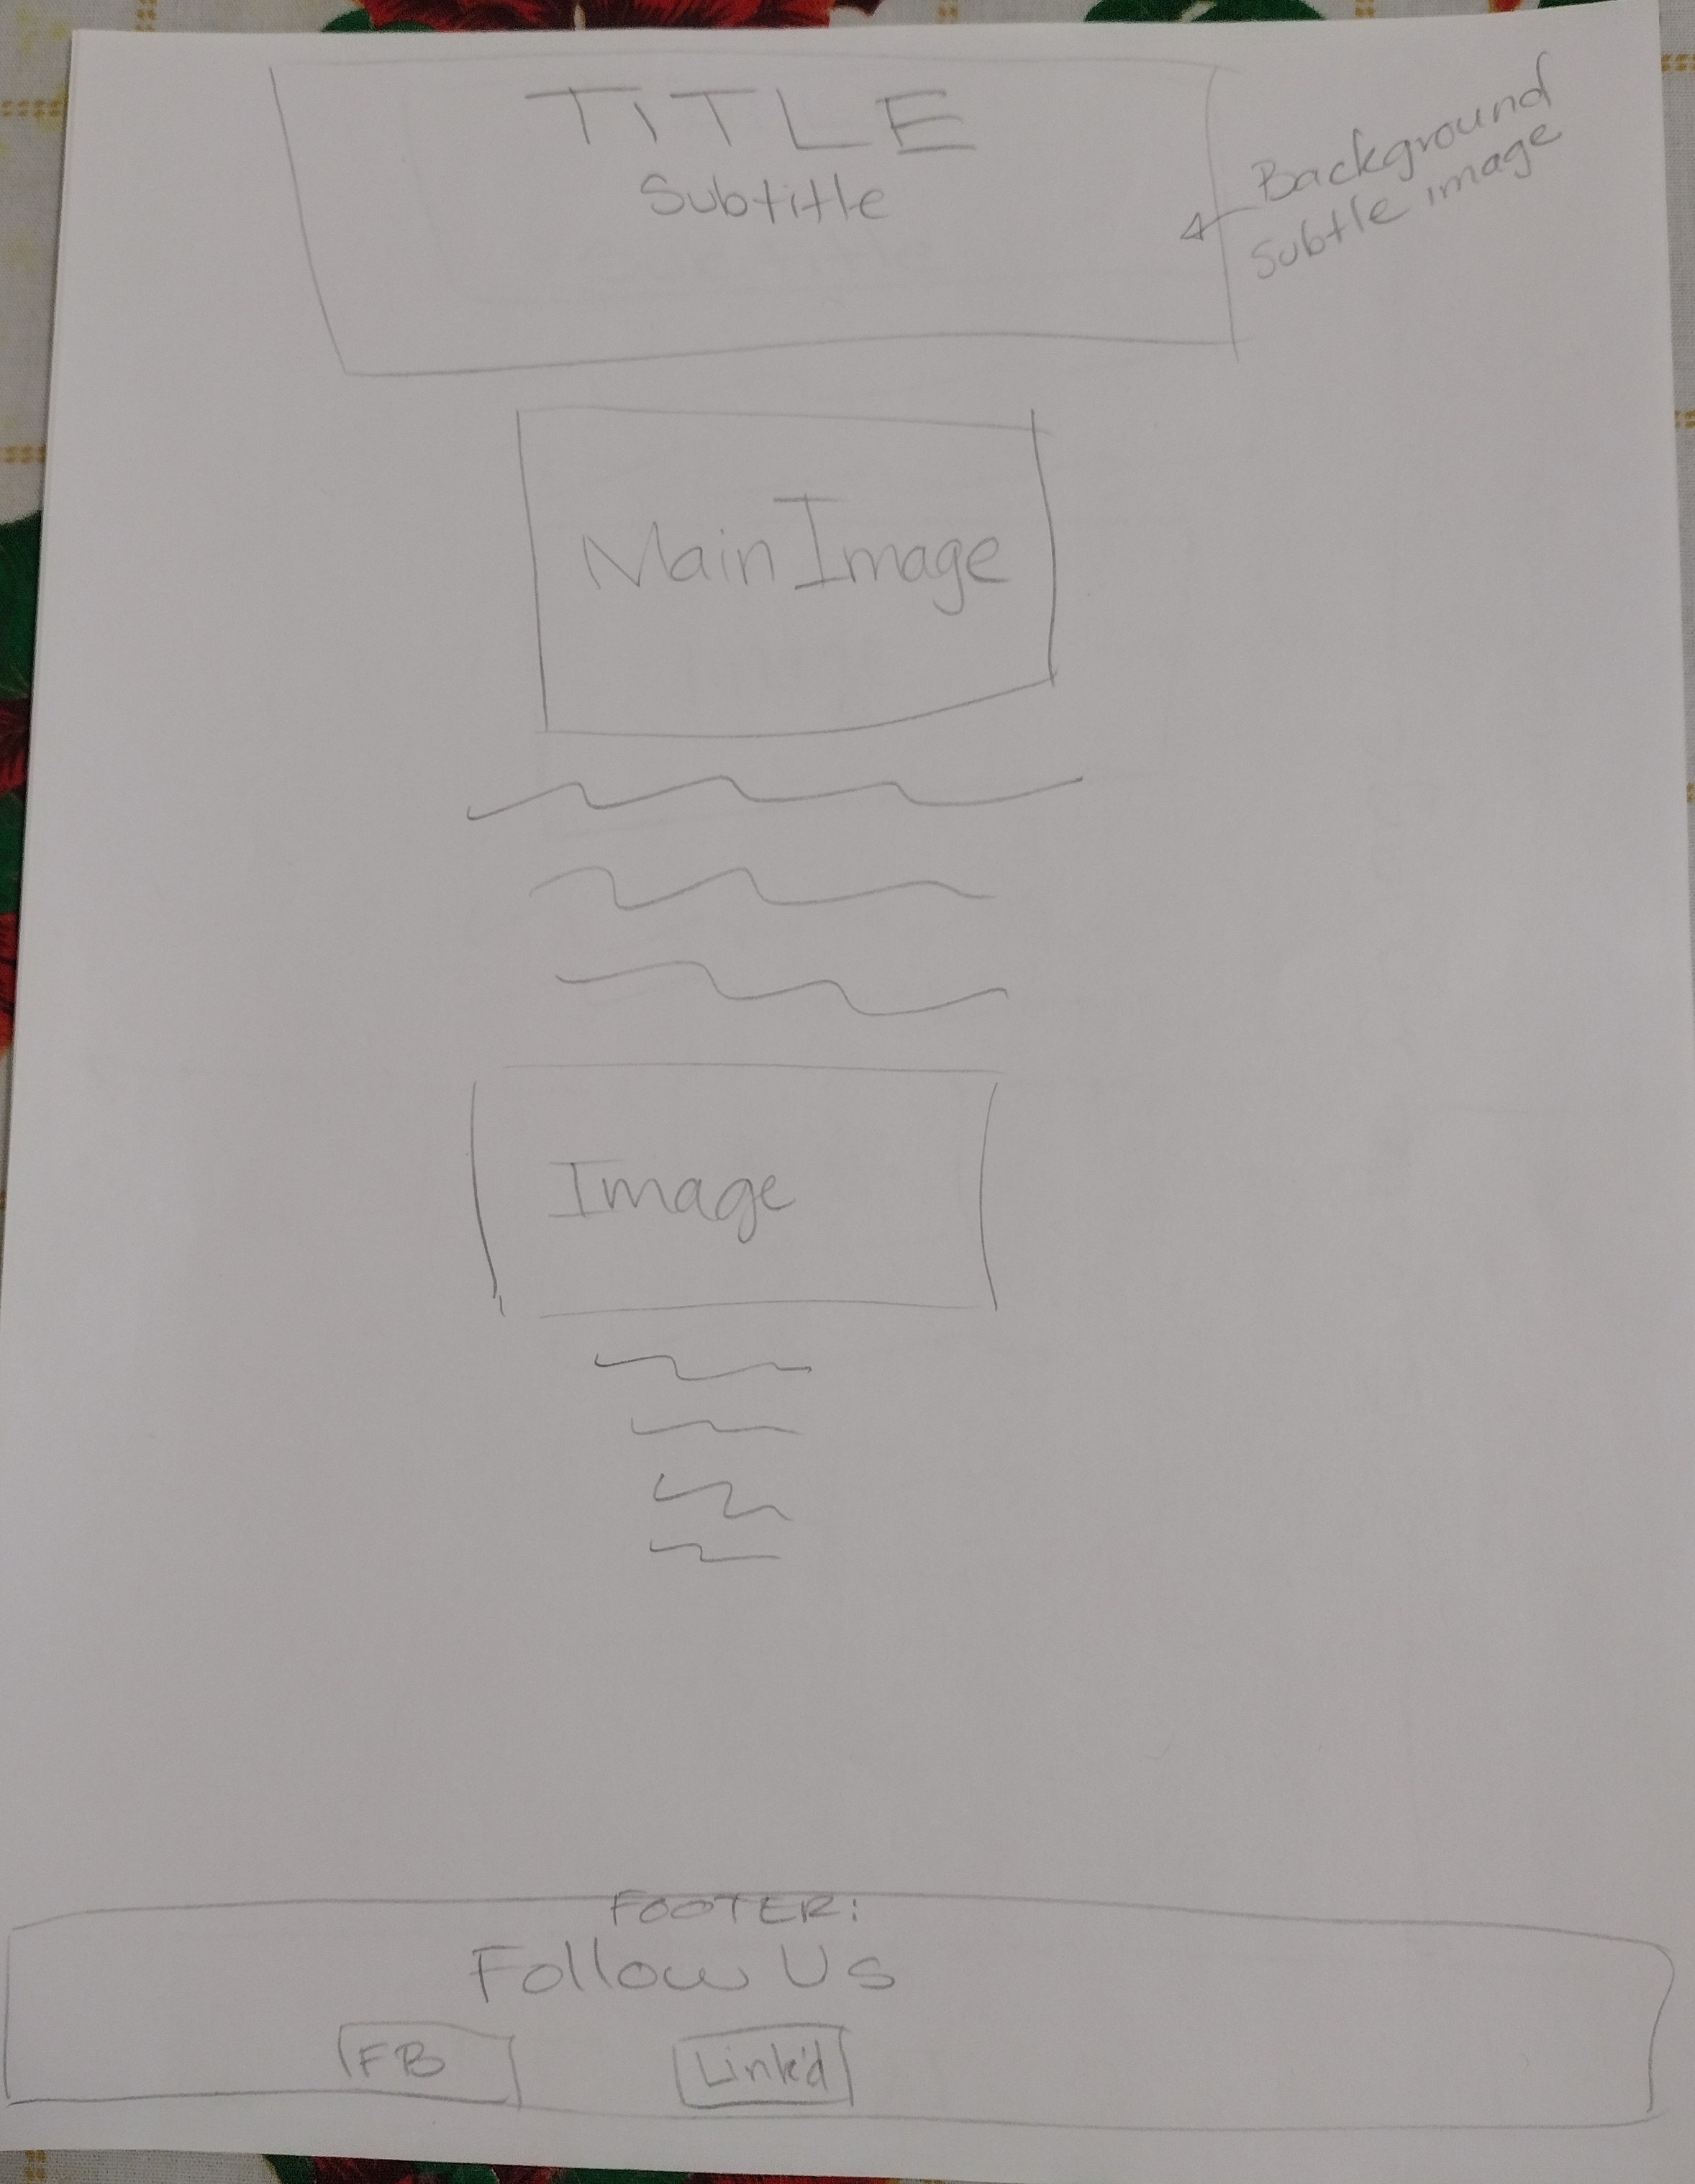 TITLE
Subtitle
Background
subtle image
Main Image
Image
FOOTER:
Follow Us
FB
Link'd